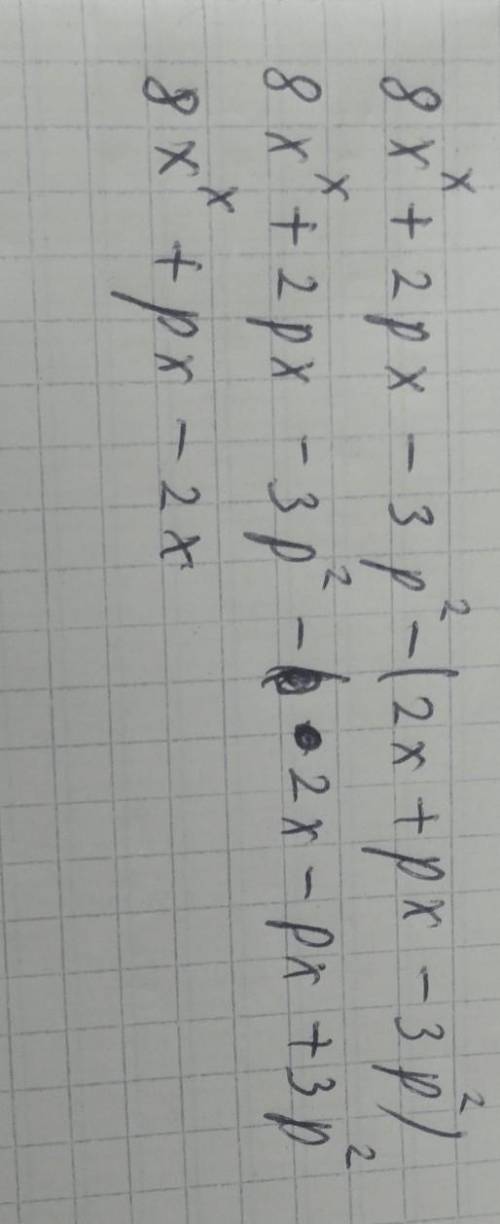 8x^x + 2px - 3p² - (2x + px - 3p²)
8x^x + 2px - 3p² - 2x - px + 3p²
8x^x + px - 2x